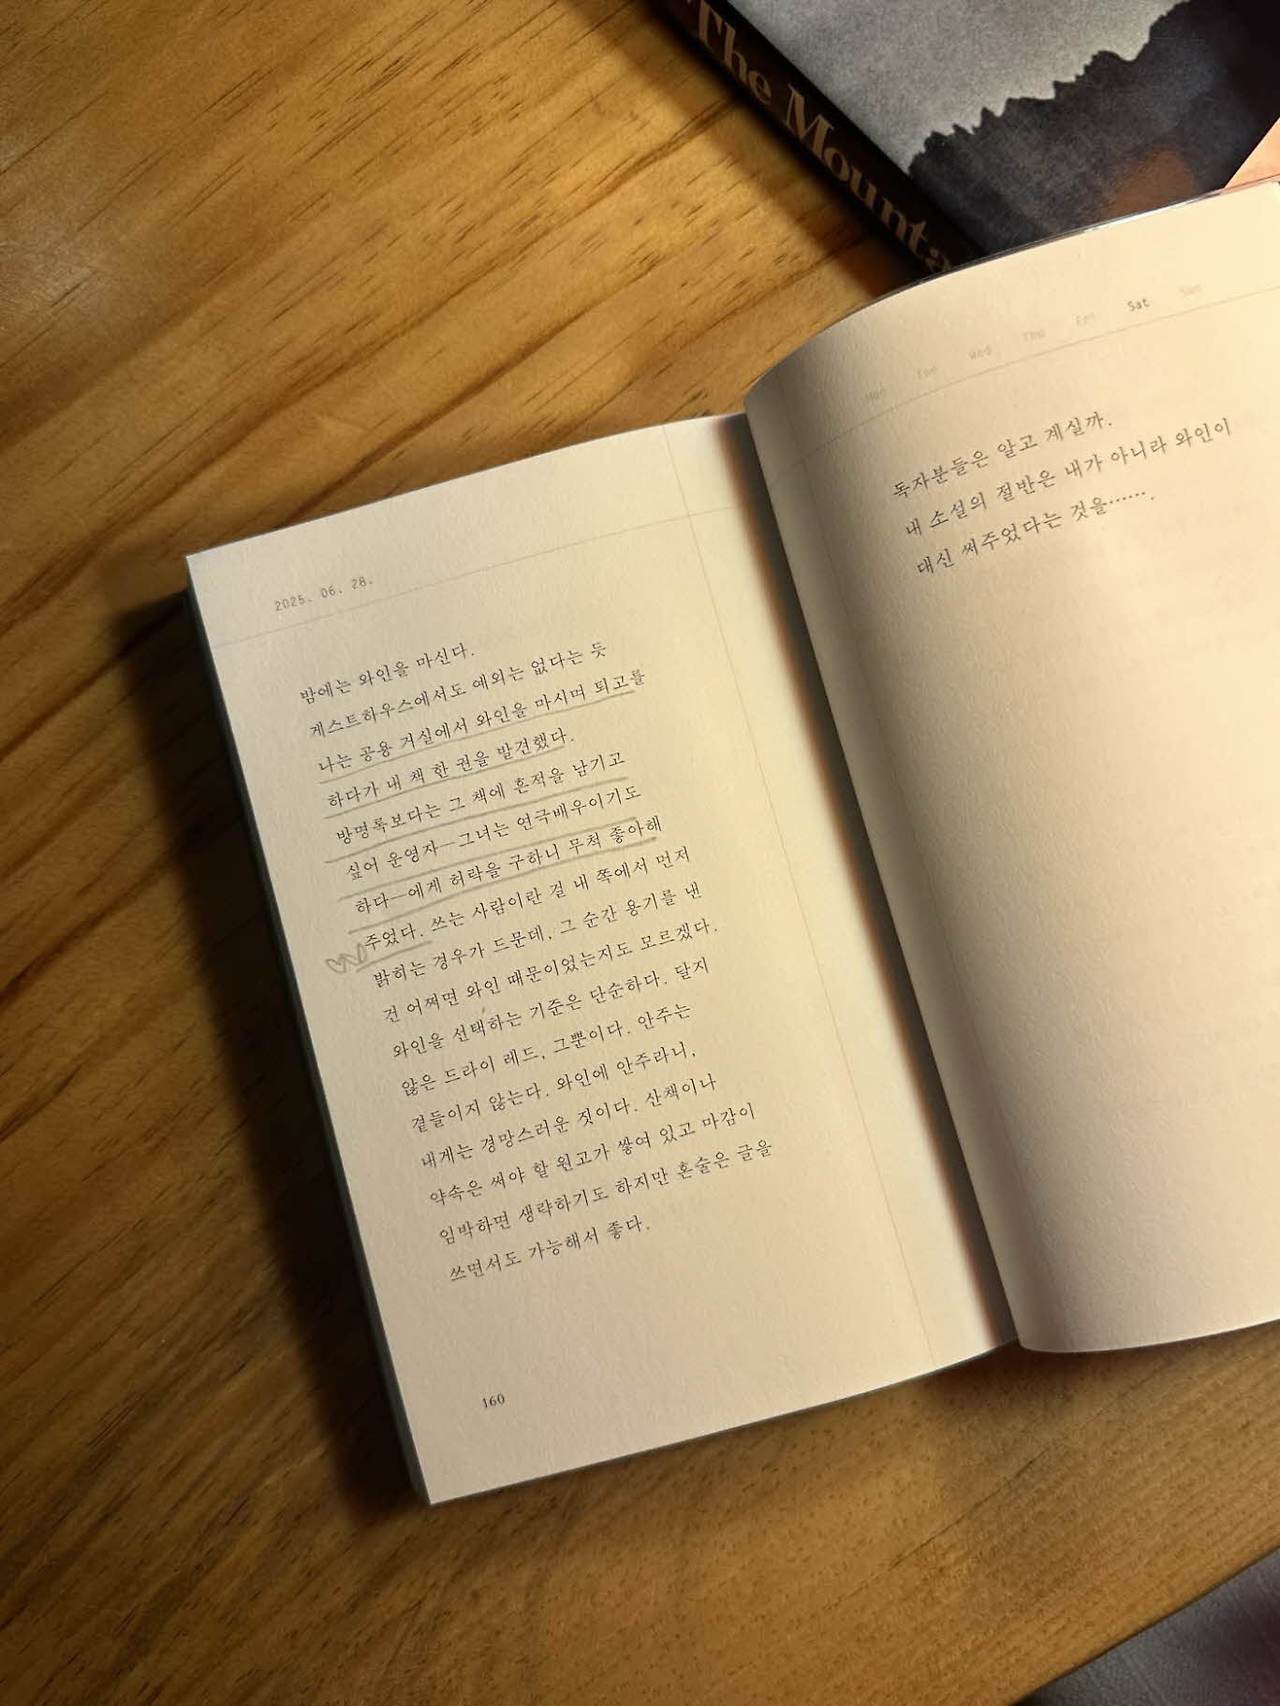 The Mounta
2025. 06. 28.
밤에는 와인을 마신다.
게스트하우스에서도 예외는 없다는 듯
나는 공용 거실에서 와인을 마시며 퇴고를
하다가 내 책 한 권을 발견했다.
방명록보다는 그 책에 흔적을 남기고
싶어 운영자—그녀는 연극배우이기도
하다—에게 허락을 구하니 무척 좋아해
주었다. 쓰는 사람이란 걸 내 쪽에서 먼저
밝히는 경우가 드문데, 그 순간 용기를 낸
건 어쩌면 와인 때문이었는지도 모르겠다.
와인을 선택하는 기준은 단순하다. 달지
않은 드라이 레드, 그뿐이다. 안주는
곁들이지 않는다. 와인에 안주라니,
내게는 경망스러운 짓이다. 산책이나
약속은 써야 할 원고가 쌓여 있고 마감이
임박하면 생략하기도 하지만 혼술은 글을
쓰면서도 가능해서 좋다.
160
Mon Tue Wed Thu Fri Sat Sun
독자분들은 알고 계실까.
내 소설의 절반은 내가 아니라 와인이
대신 써주었다는 것을…….